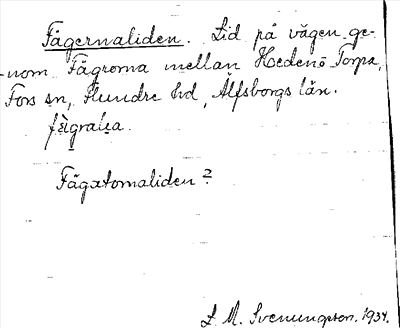 Fägernaliden. Lid på vägen ge-
nom Fägrorna mellan Hedens Torpa,
Fors sn, Flundre hd, Älfsborgs län.
Fägatornaliden?
L. M. Svenungsson. 1934.